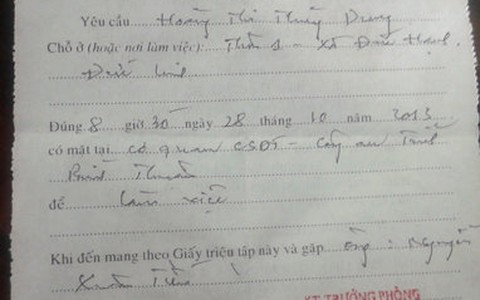 Yêu cầu Hoàng Thị Thùy Dung
Chỗ ở (hoặc nơi làm việc): Thôn 1 - Xã Đức Hạnh
Đức Linh
Đúng 8 giờ 30 ngày 28 tháng 10 năm 2013
có mặt tại cơ quan CSĐT - Công an Tỉnh
Bình Thuận
để làm việc
Khi đến mang theo Giấy triệu tập này và gặp Ông: Nguyễn
Xuân
KT.TRƯỞNG PHÒNG